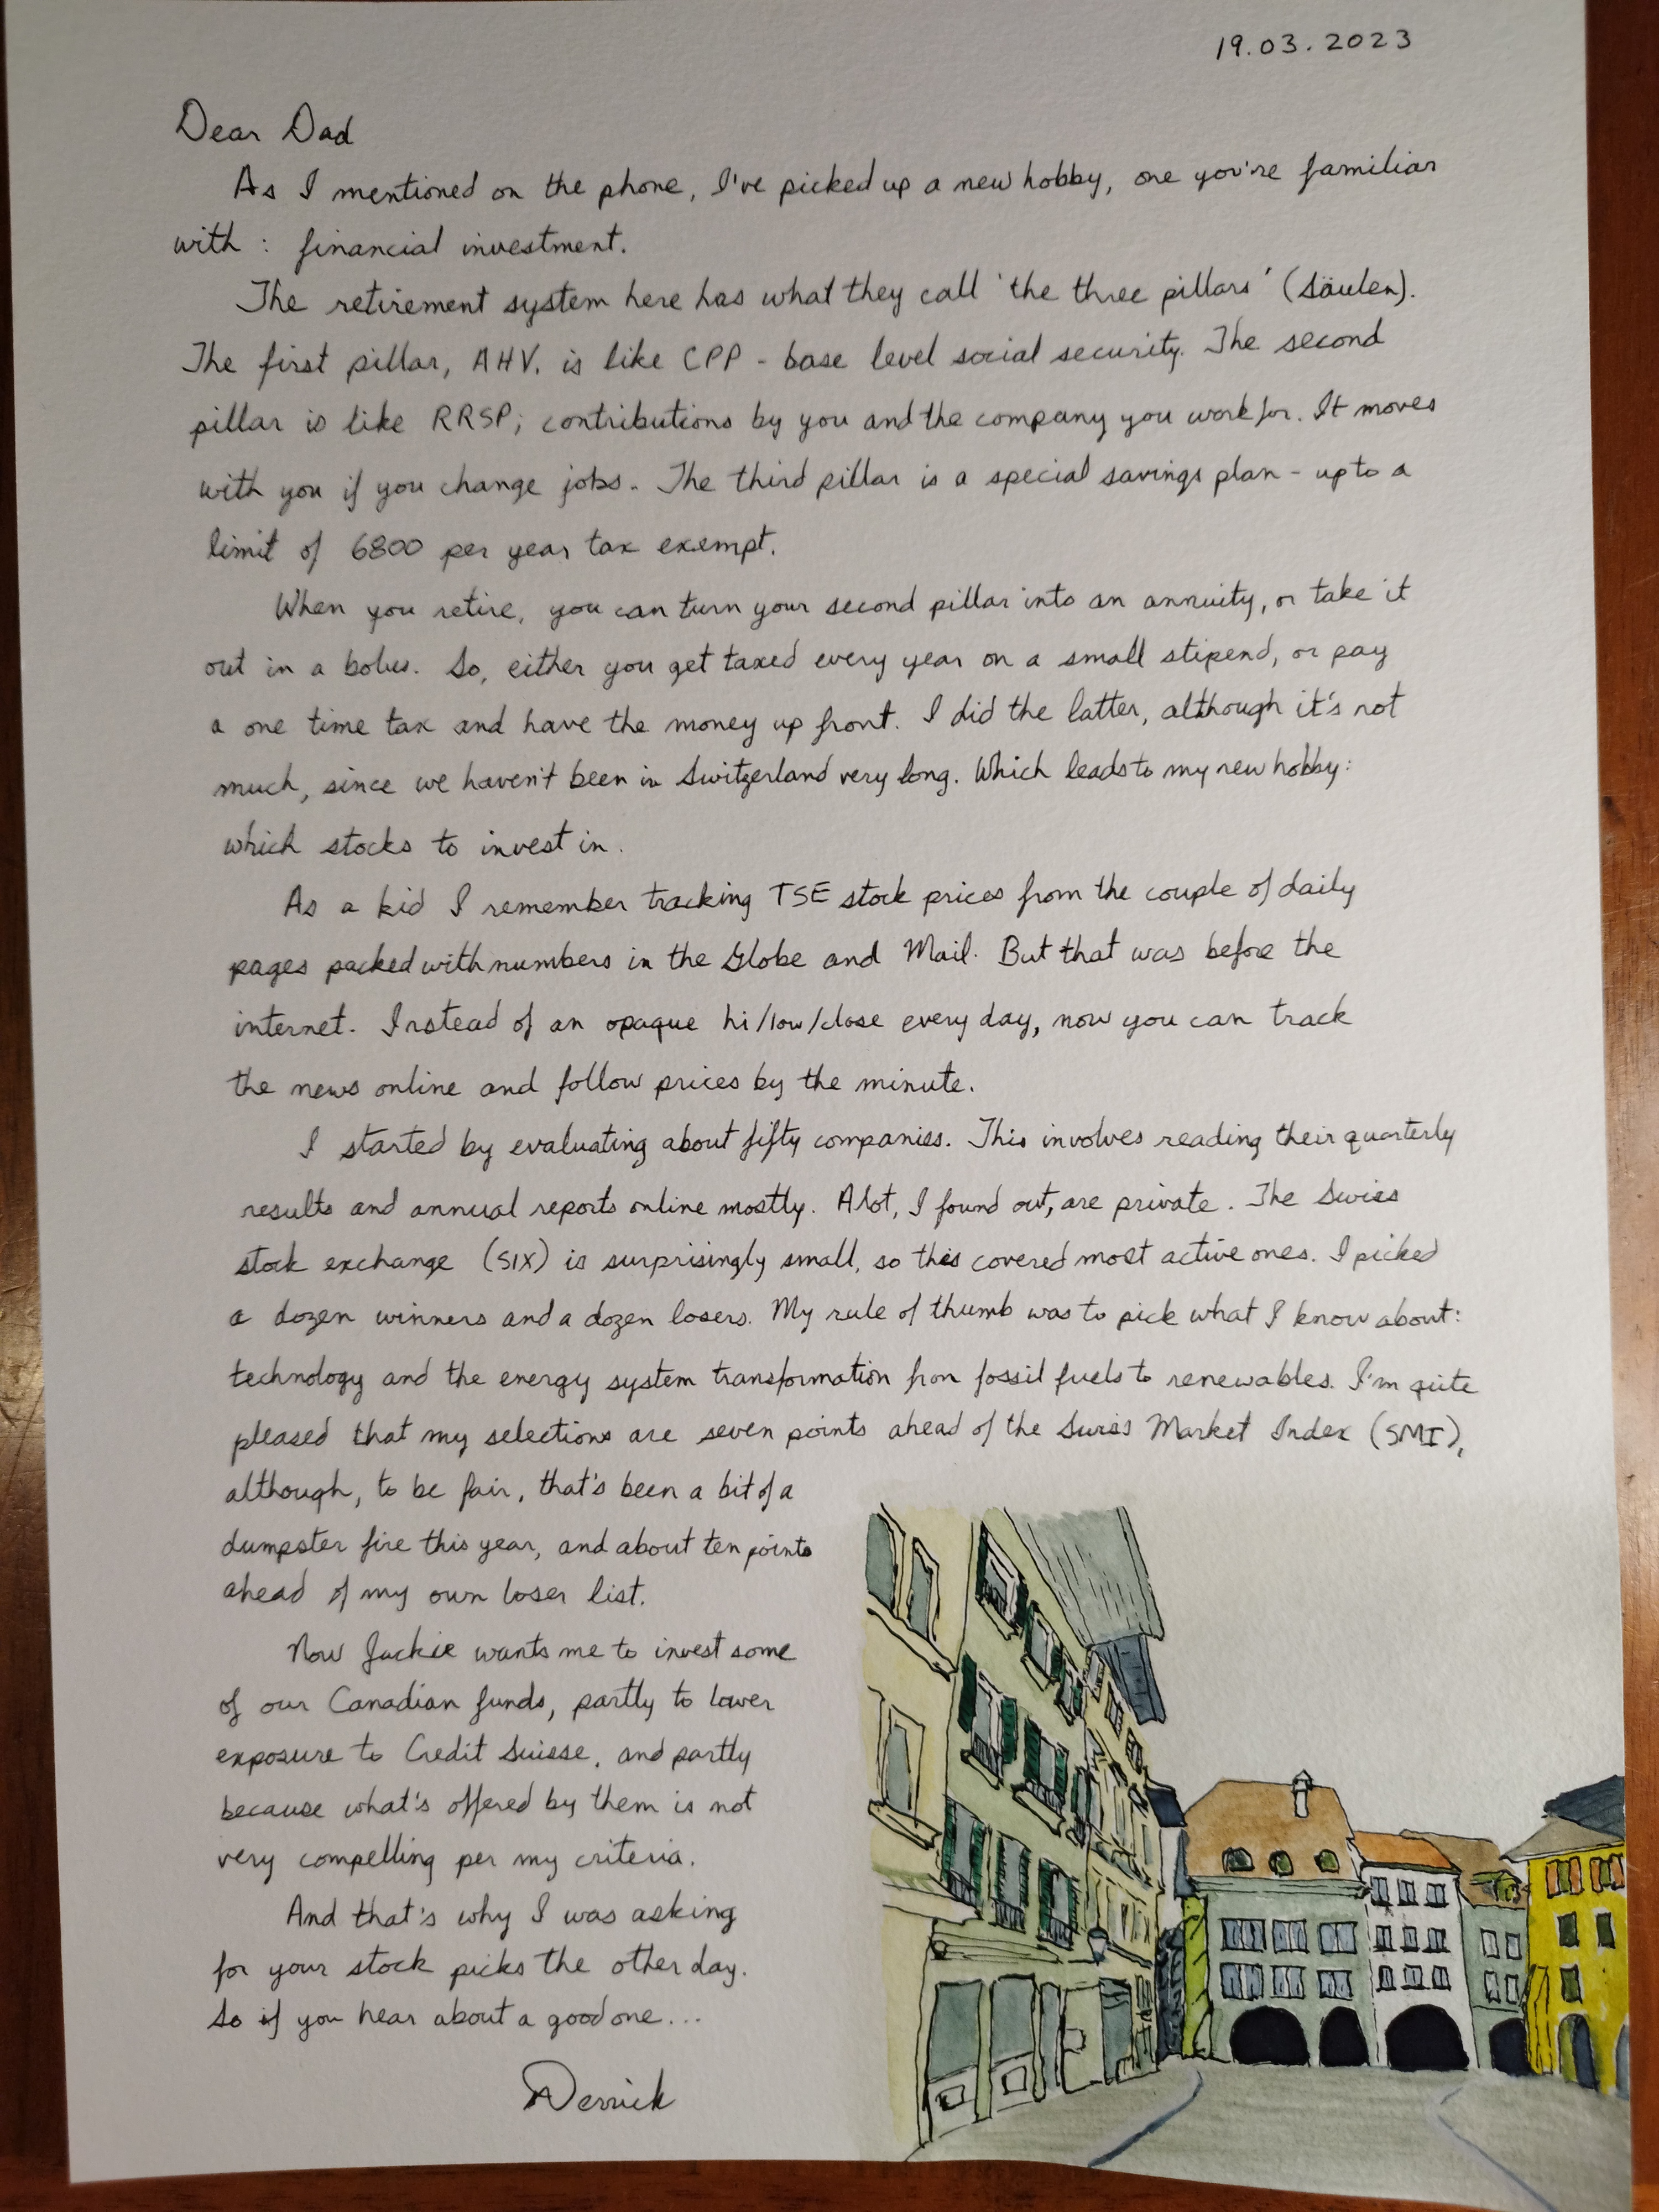 19.03.2023
Dear Dad
As I mentioned on the phone, I've picked up a new hobby, one you're familiar
with : financial investment.
The retirement system here has what they call 'the three pillars' (Säulen).
The first pillar, AHV, is like CPP - base level social security. The second
pillar is like RRSP; contributions by you and the company you work for. It moves
with you if you change jobs. The third pillar is a special savings plan - up to a
limit of 6800 per year tax exempt.
When you retire, you can turn your second pillar into an annuity, or take it
out in a bolus. So, either you get taxed every year on a small stipend, or pay
a one time tax and have the money up front. I did the latter, although it's not
much, since we haven't been in Switzerland very long. Which leads to my new hobby:
which stocks to invest in.
As a kid I remember tracking TSE stock prices from the couple of daily
pages packed with numbers in the Globe and Mail. But that was before the
internet. Instead of an opaque hi/low/close every day, now you can track
the news online and follow prices by the minute.
I started by evaluating about fifty companies. This involves reading their quarterly
results and annual reports online mostly. A lot, I found out, are private. The Swiss
stock exchange (SIX) is surprisingly small, so this covered most active ones. I picked
a dozen winners and a dozen losers. My rule of thumb was to pick what I know about:
technology and the energy system transformation from fossil fuels to renewables. I'm quite
pleased that my selections are seven points ahead of the Swiss Market Index (SMI),
although, to be fair, that's been a bit of a
dumpster fire this year, and about ten points
ahead of my own loser list.
Now Jackie wants me to invest some
of our Canadian funds, partly to lower
exposure to Credit Suisse, and partly
because what's offered by them is not
very compelling per my criteria.
And that's why I was asking
for your stock picks the other day.
So if you hear about a good one...
Derrick